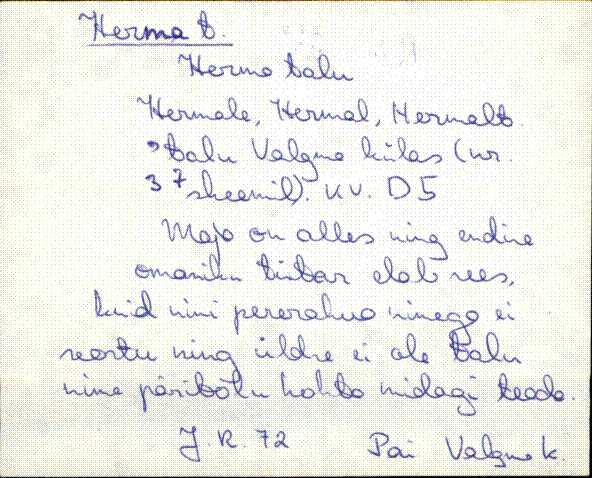 Herma t.
Herma talu
Hermale, Hermal, Hermalt.
talu Valgma külas (nr.
37 skeemil). kv. D5
Maja on alles ning endise
omaniku tütar elab sees,
kuid nimi pererahva nimega ei
seostu ning üldse ei ole talu
nime päritolu kohta midagi teada.
J. R. 72 Pai Valgma k.